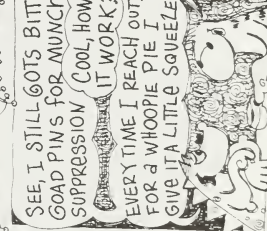 SEE, I STILL GOTS BITT
GOAD PINS FOR MUNCH
SUPPRESSION
COOL, HOW
IT WORK?
EVERYTIME I REACH OUT
FOR a WHOOPIE PIE I
GIVE IT A LITTLE SQUEEZE